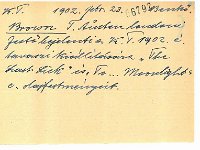 K.T. 1902. febr. 23. 1679 Benkő
Brown T. Austen londoni
festő bejelenti a K.T. 1902. é.
tavaszi kiállítására „The
Last Lick" és „To ... Moonlight"
c. festményeit.